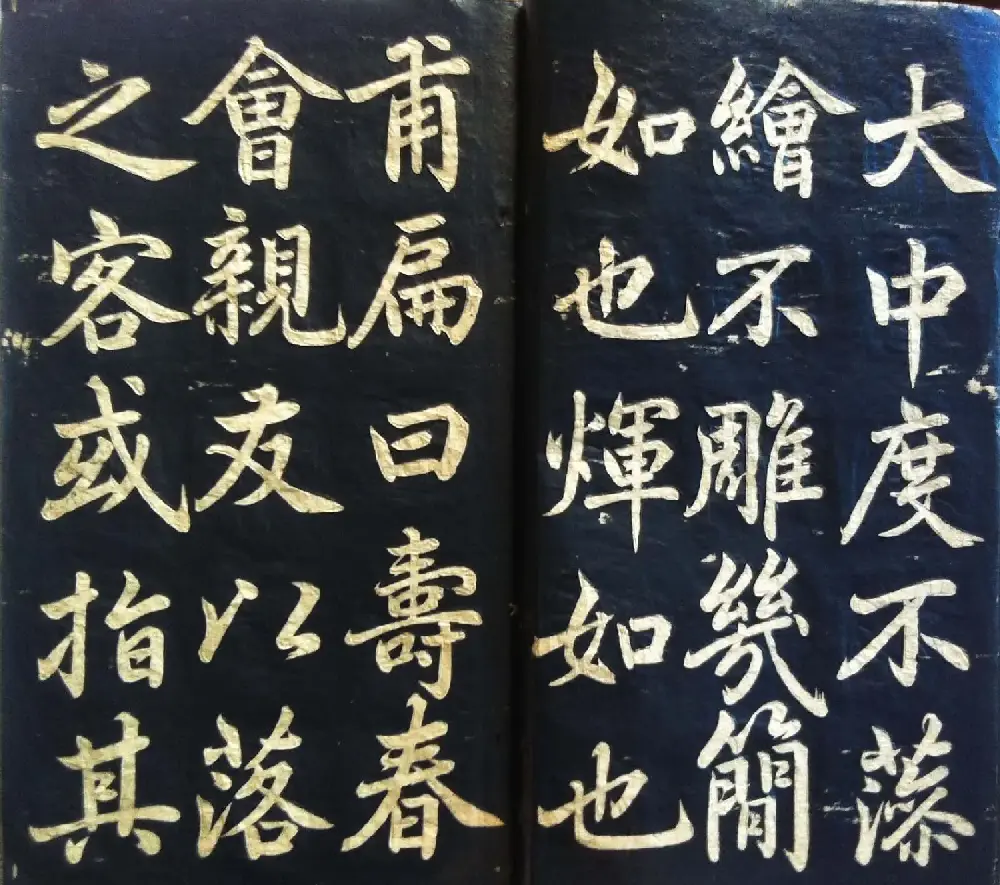 大中度不藻
繪不雕幾簡
如也煇如也
甫扁曰壽春
會親友以落
之客或指其